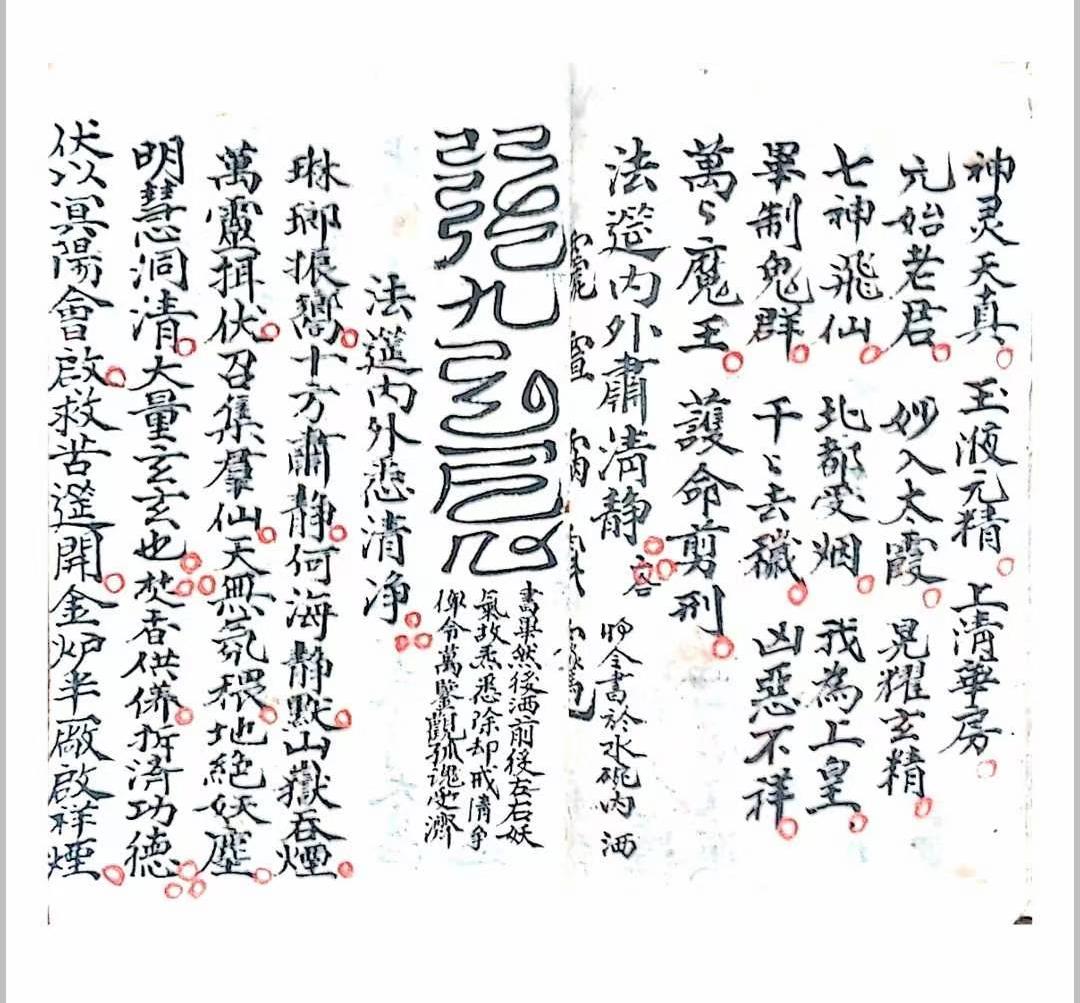 神灵天真 玉液元精 上清華房
元始老君 妙入太霞 晃耀玄精
七神飛仙 北都受烟 我為上皇
畢制鬼群 千々去穢 凶惡不祥
萬々魔王 護命剪刑
法筵内外肅清静
令書於水碗内 洒
九
書畢然後洒前後左右妖
氣故悉除却戒清爭
令萬靈觀孤魂
法筵内外悉清净
琳瑯振嚮十方肅静何海静默山嶽吞煙
萬靈揖伏召集羣仙天無氛穢地絶妖塵
明慧洞清大量玄玄也焚香供俻功德
伏以溟陽會啟救苦筵開金炉半啟祥煙